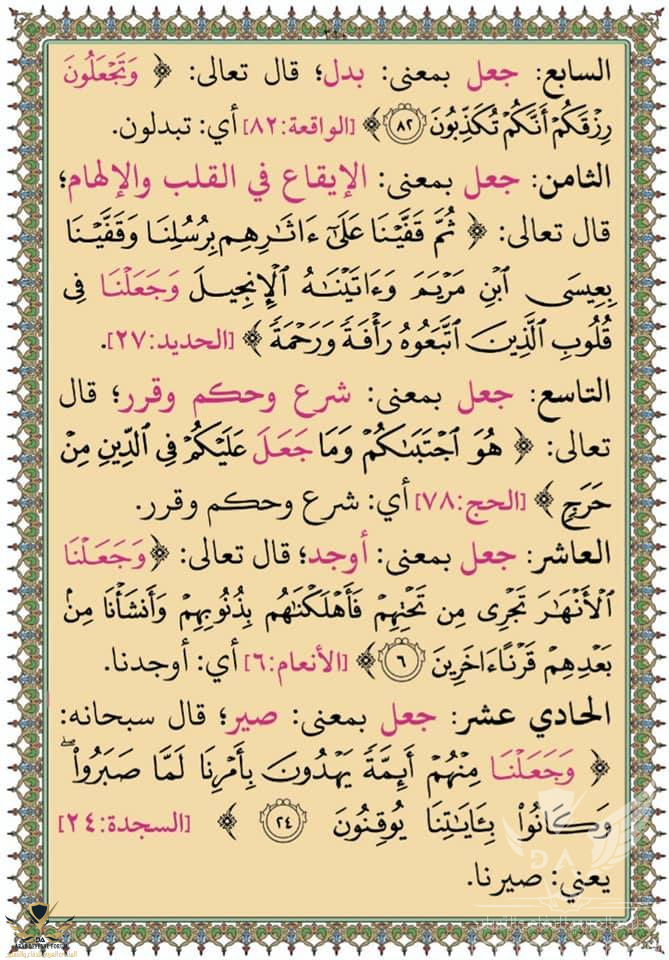 ٢٤٠
السابع: جعل بمعنى: بدل؛ قال تعالى: ﴿ وَتَجْعَلُونَ
رِزْقَكُمْ أَنَّكُمْ تُكَذِّبُونَ ٨٢ ﴾ [الواقعة:٨٢] أي: تبدلون.
الثامن: جعل بمعنى: الإيقاع في القلب والإلهام؛
قال تعالى: ﴿ ثُمَّ قَفَّيْنَا عَلَىٰٓ ءَاثَٰرِهِم بِرُسُلِنَا وَقَفَّيْنَا
بِعِيسَى ٱبْنِ مَرْيَمَ وَءَاتَيْنَٰهُ ٱلْإِنجِيلَ وَجَعَلْنَا فِى
قُلُوبِ ٱلَّذِينَ ٱتَّبَعُوهُ رَأْفَةً وَرَحْمَةً ﴾ [الحديد:٢٧].
التاسع: جعل بمعنى: شرع وحكم وقرر؛ قال
تعالى: ﴿ هُوَ ٱجْتَبَىٰكُمْ وَمَا جَعَلَ عَلَيْكُمْ فِى ٱلدِّينِ مِنْ
حَرَجٍ ﴾ [الحج:٧٨] أي: شرع وحكم وقرر.
العاشر: جعل بمعنى: أوجد؛ قال تعالى: ﴿ وَجَعَلْنَا
ٱلْأَنْهَٰرَ تَجْرِى مِن تَحْتِهِمْ فَأَهْلَكْنَٰهُم بِذُنُوبِهِمْ وَأَنشَأْنَا مِنۢ
بَعْدِهِمْ قَرْنًا ءَاخَرِينَ ٦ ﴾ [الأنعام:٦] أي: أوجدنا.
الحادي عشر: جعل بمعنى: صير؛ قال سبحانه:
﴿ وَجَعَلْنَا مِنْهُمْ أَئِمَّةً يَهْدُونَ بِأَمْرِنَا لَمَّا صَبَرُوا۟ ۖ
وَكَانُوا۟ بِـَٔايَٰتِنَا يُوقِنُونَ ٢٤ ﴾ [السجدة:٢٤]
يعني: صيرنا.
DA
DA
ARAB DEFENSE FORUM
المنتدى العربي للدفاع والتسليح